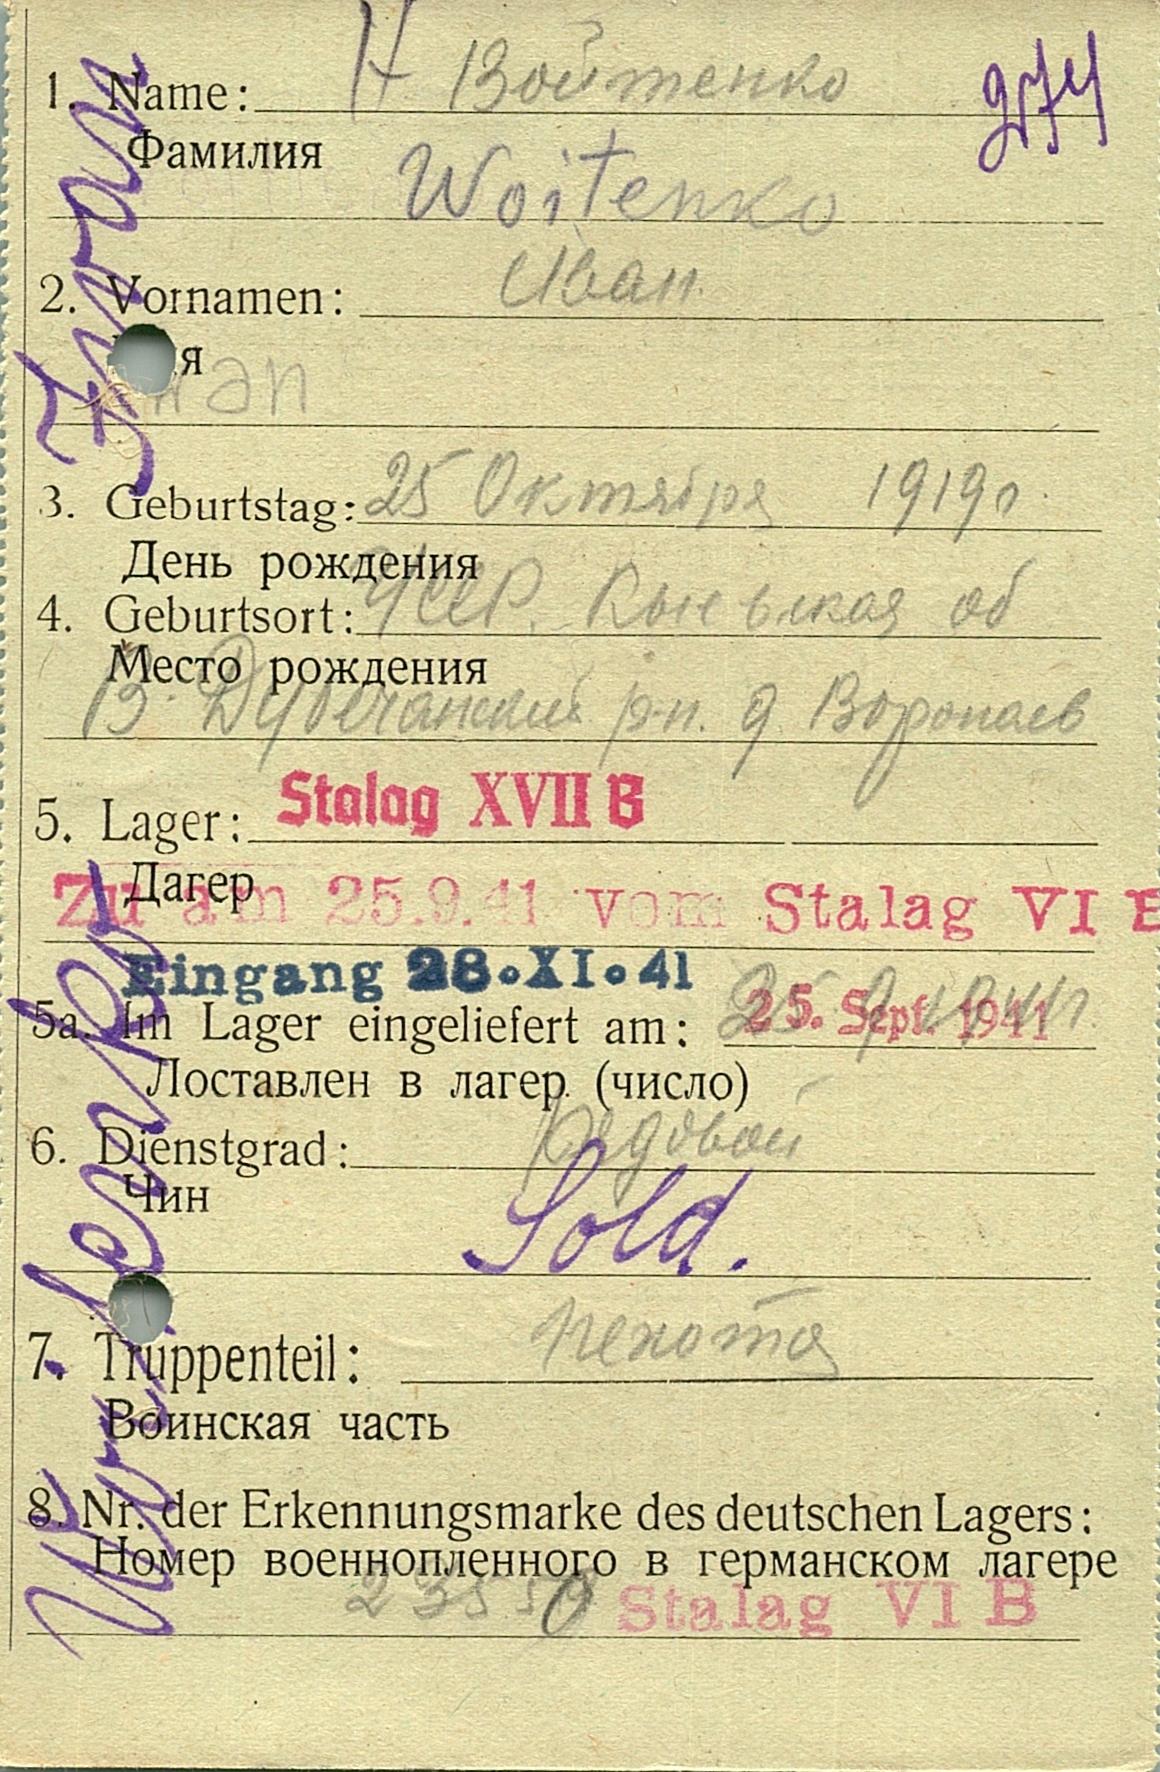 H Войтенко
1. Name:
274
Фамилия
Woitenko
2. Vornamen: Иван
я
3. Geburtstag: 25 Октября 1919г
День рождения
4. Geburtsort: УССР. Кыевская об
Место рождения
В. Дубечанский р-н. д Воропаев
5. Lager: Stalag XVII B
Дагер
Zu am 25.9.41 vom Stalag VI B
Eingang 28.XI.41
5a. Im Lager eingeliefert am: 25. Sept. 1941
Лоставлен в лагер (число)
6. Dienstgrad: Рядовой
Чин
Sold.
7. Truppenteil: пехота
Воинская часть
8. Nr. der Erkennungsmarke des deutschen Lagers:
Номер военнопленного в германском лагере
23550 Stalag VI B
Iwan